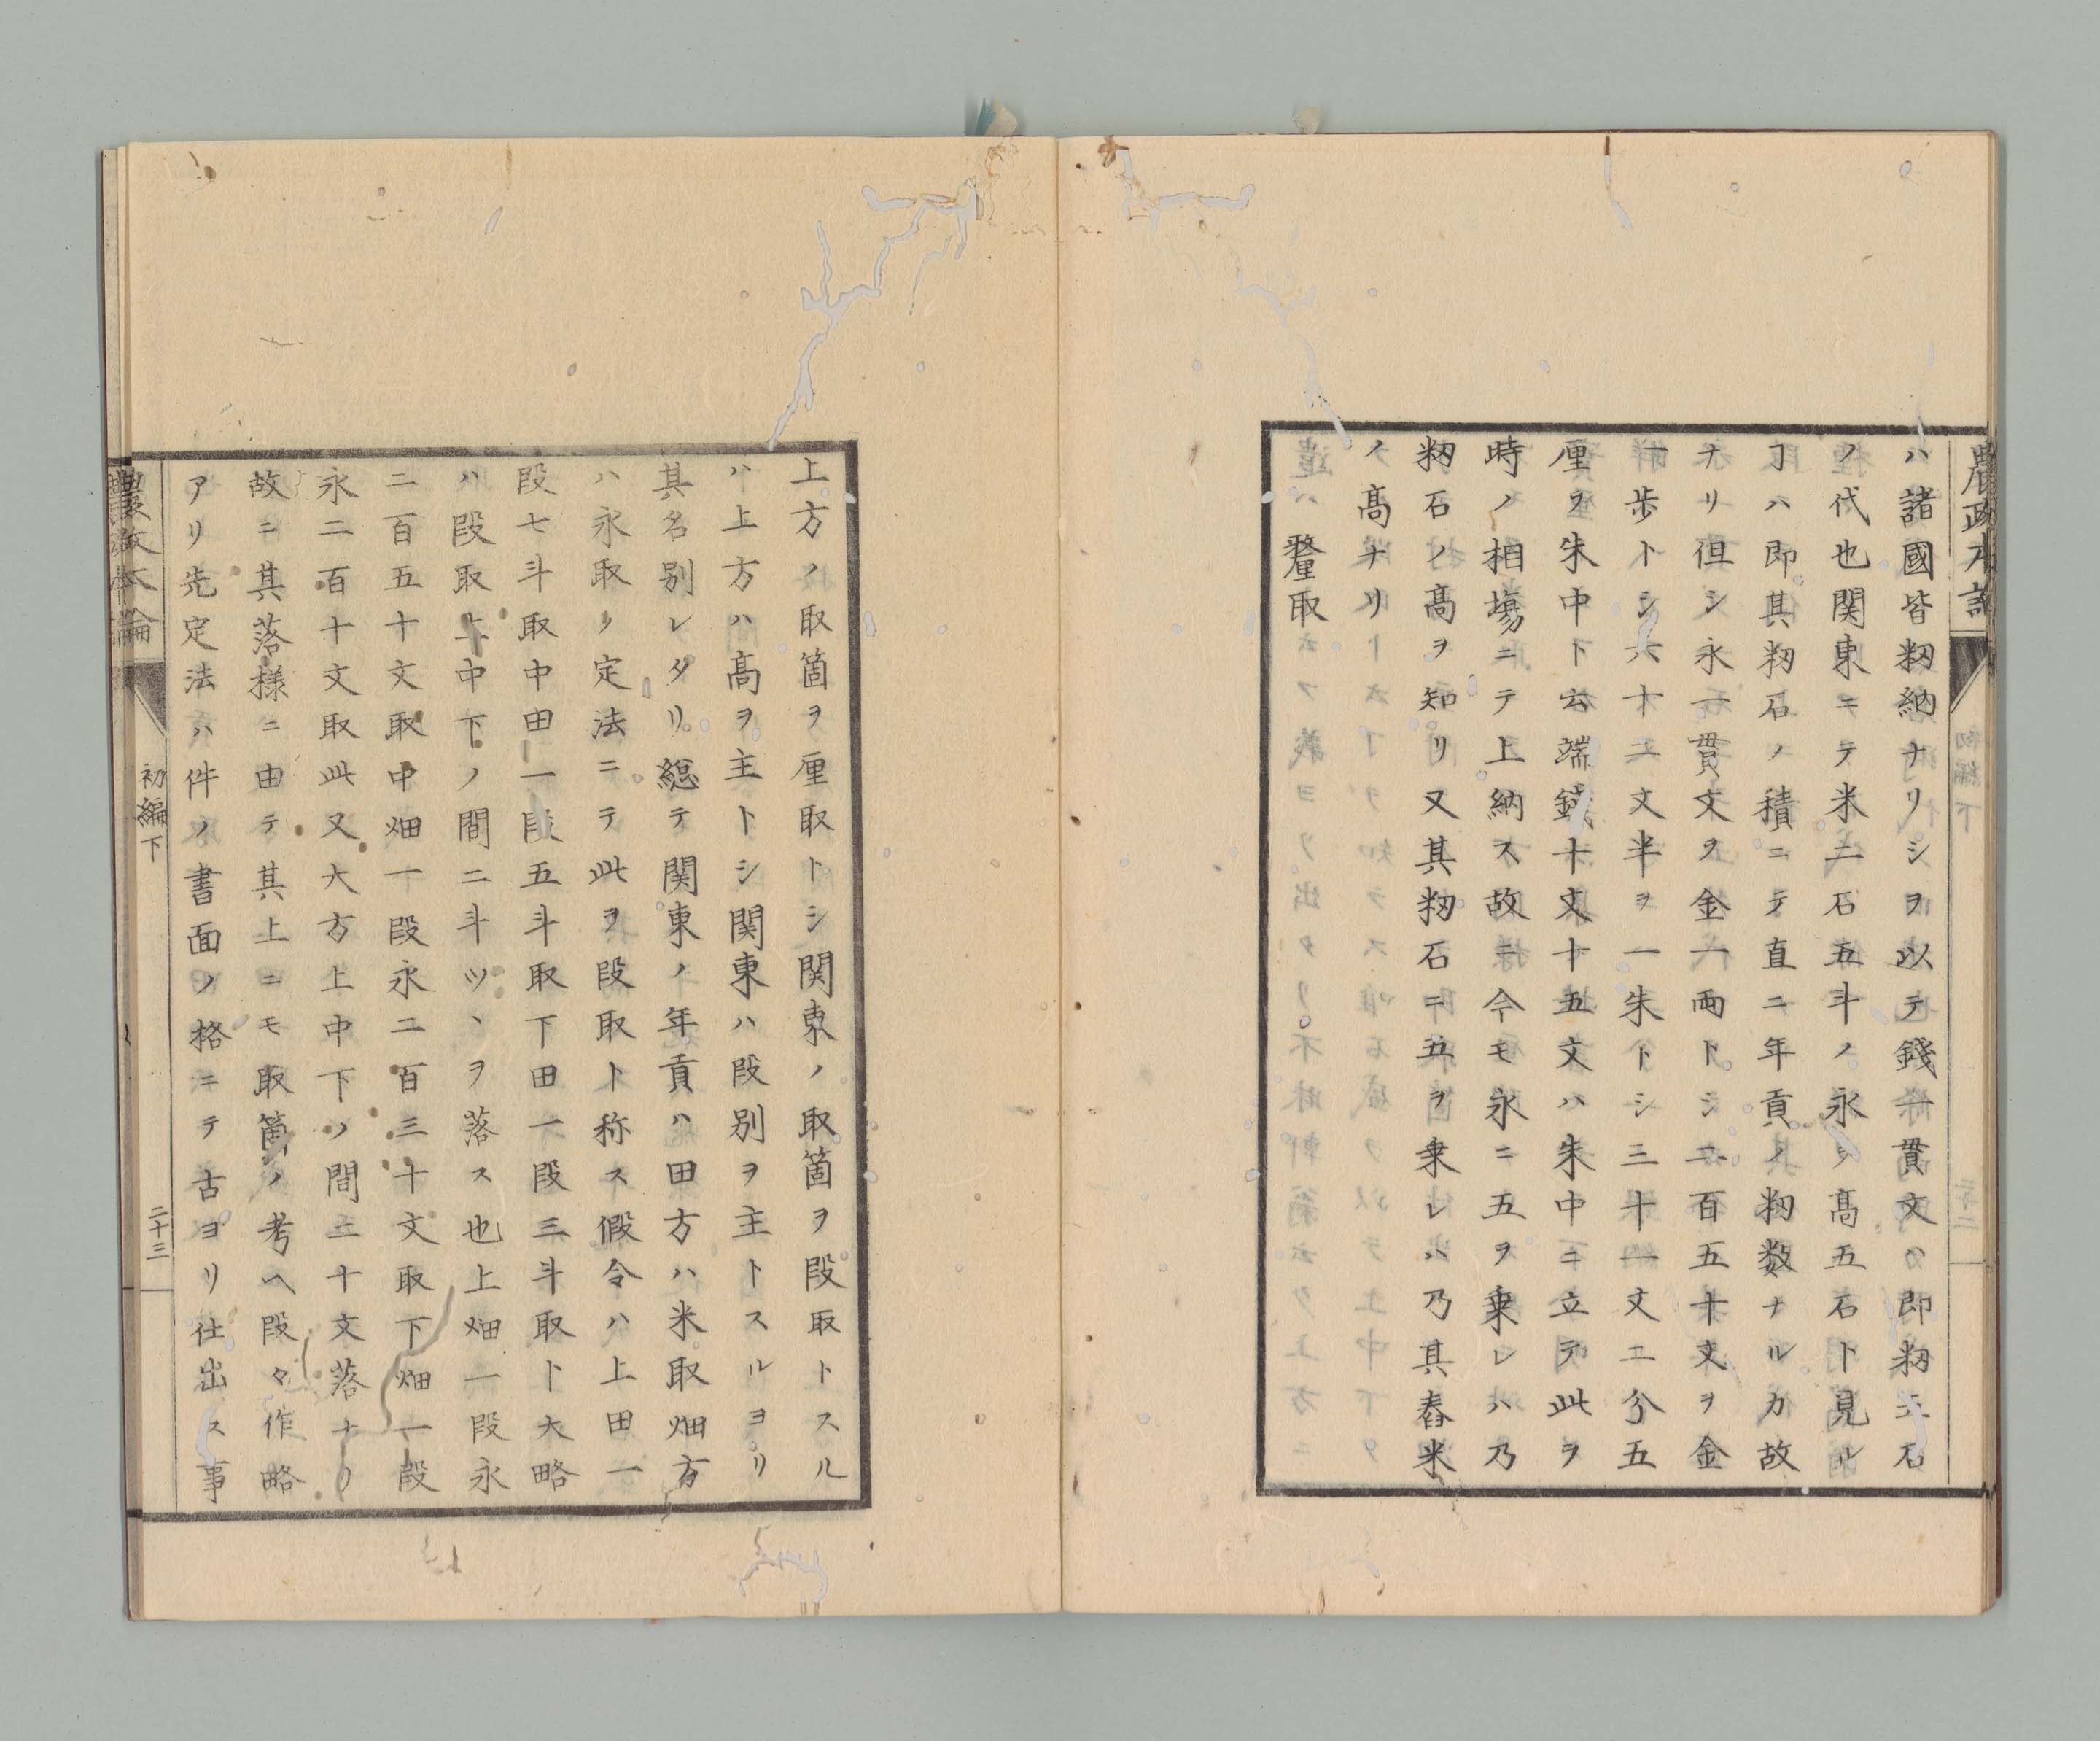 農政本論
初編下
ハ諸國皆籾納ナリシヲ以テ錢一貫文ハ即籾五石
ノ代也関東ニテ米二石五斗ノ永ノ髙五石ト見ル
丁ハ即其籾石ノ積ニテ直ニ年貢ノ籾数ナルカ故
ナリ但シ永一貫文ヲ金一両トシ二百五十文ヲ金
一歩トシ六十二文半ヲ一朱トシ三十一文二分五
厘ヲ朱中ト云端錢十文十五文ハ朱中ニ立テ此ヲ
時ノ相塲ニテ上納ス故ニ今モ永ニ五ヲ乗レハ乃
籾石ノ髙ヲ知リ又其籾石ニ五ヲ乗レハ乃其舂米
ノ髙ナリ
釐取
上方ノ取箇ヲ厘取トシ関東ノ取箇ヲ段取トスル
ハ上方ハ髙ヲ主トシ関東ハ段別ヲ主トスルヨリ
其名別レタリ総テ関東ノ年貢ハ田方ハ米取畑方
ハ永取ノ定法ニテ此ヲ段取ト称ス假令ハ上田一
段七斗取中田一段五斗取下田一段三斗取ト大略
ハ段取上中下ノ間二斗ツヽヲ落ス也上畑一段永
二百五十文取中畑一段永二百三十文取下畑一段
永二百十文取此又大方上中下ノ間二十文落ナリ
故ニ其落様ニ由テ其上ニモ取箇ノ考ヘ段々作略
アリ先定法ハ件ノ書面ノ格ニテ古ヨリ仕出ス事
農政本論
初編下
二十三